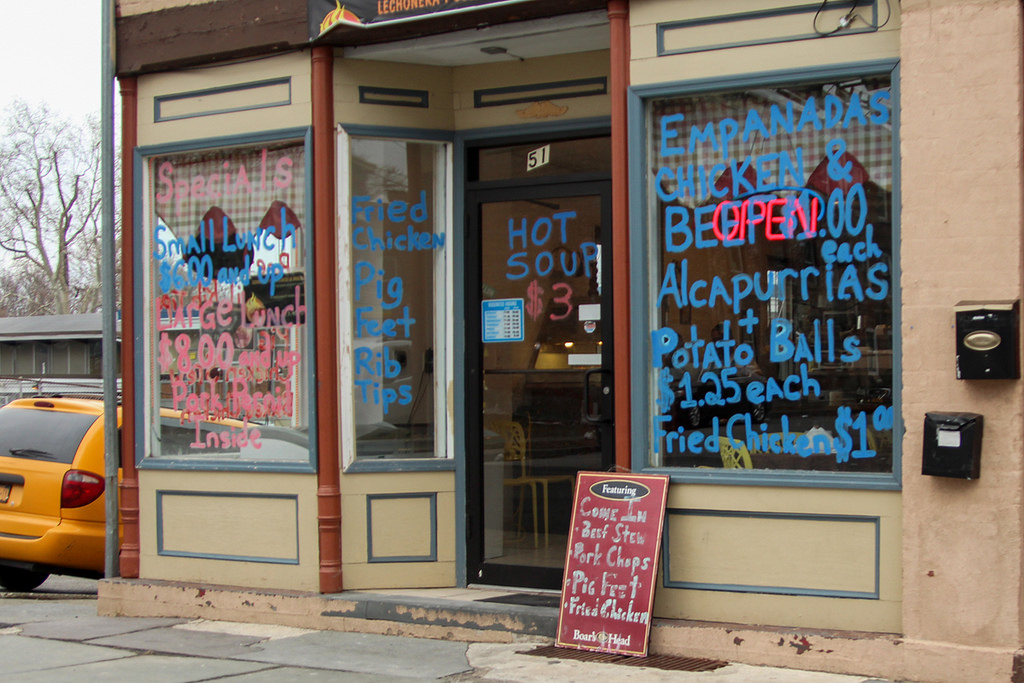 LECHONERA
51
Specials
Small Lunch
$6.00 and up
Large Lunch
$8.00 and up
Pork
Bread
Inside
Fried
Chicken
Pig
Feet
Rib
Tips
HOT
SOUP
$3
BUSINESS HOURS
EMPANADAS
CHICKEN &
BEEF .00
OPEN
each
Alcapurrias
+
Potato Balls
$1.25 each
Fried Chicken $1.00
Featuring
Come In
Beef Stew
Pork Chops
Pig Feet
Fried Chicken
Boar's Head